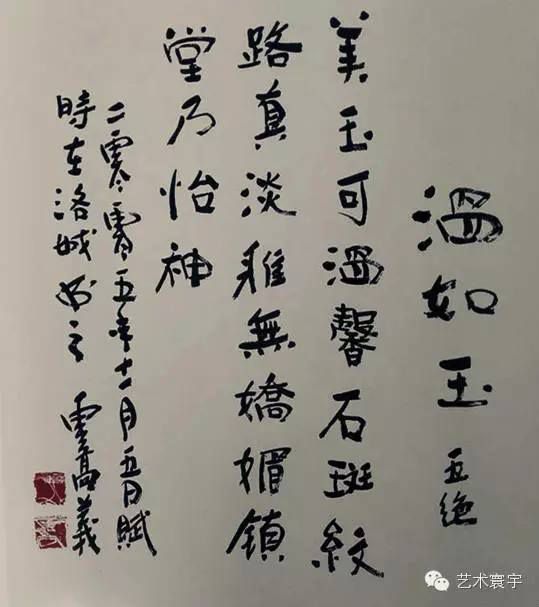 溫如玉 五絕
美玉可溫馨石斑紋
路真淡雅無嬌媚鎮
堂乃怡神
二零零五年十一月五日賦
時在洛城書之 雲高義
艺术寰宇